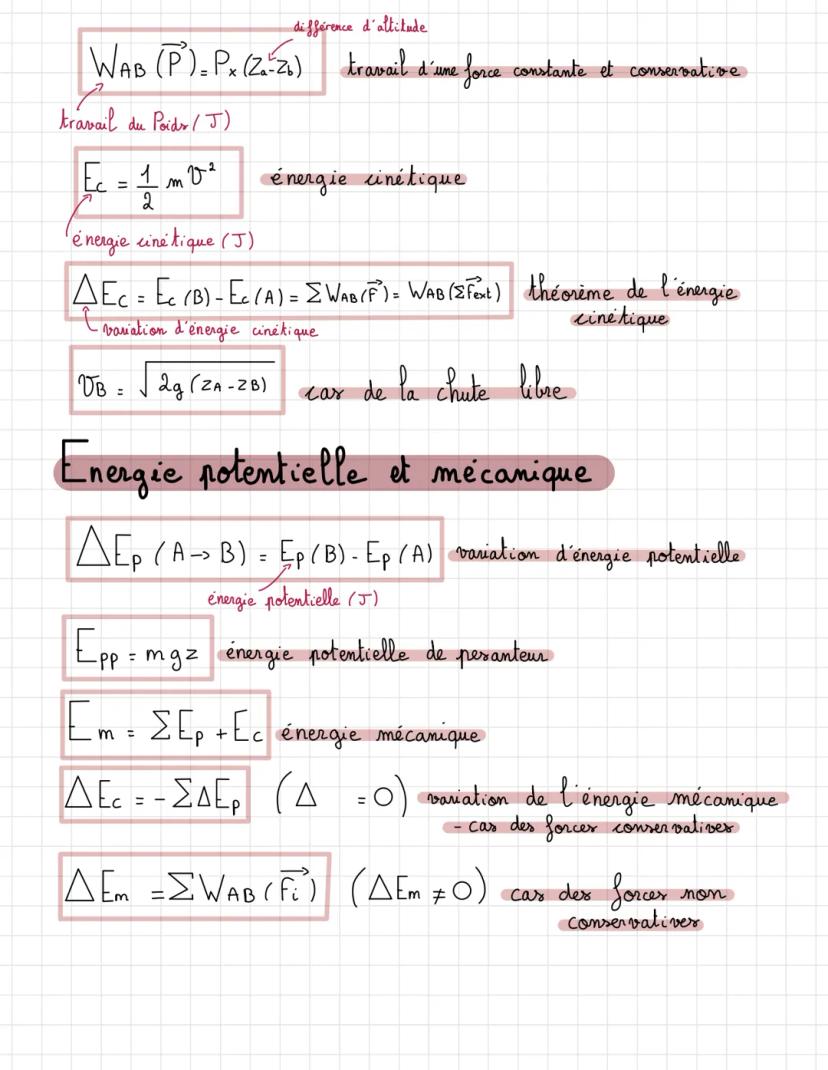 différence d'altitude
WAB (P⃗) = P x (Za-Zb) travail d'une force constante et conservative
travail du Poids (J)
Ec = 1/2 m v² énergie cinétique
énergie cinétique (J)
ΔEc = Ec (B) - Ec (A) = ΣWAB(F⃗) = WAB (ΣF⃗ext) théorème de l'énergie
cinétique
variation d'énergie cinétique
vB = √2g (ZA - ZB) cas de la chute libre
Energie potentielle et mécanique
ΔEp (A → B) = Ep (B) - Ep (A) variation d'énergie potentielle
énergie potentielle (J)
Epp = mgz énergie potentielle de pesanteur
Em = ΣEp + Ec énergie mécanique
ΔEc = - ΣΔEp (Δ = O) variation de l'énergie mécanique
- cas des forces conservatives
ΔEm = ΣWAB (F⃗i) (ΔEm ≠ O) cas des forces non
conservatives